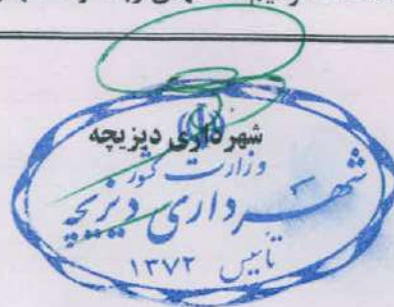 شهرداری دیزیچه
وزارت کشور
شهرداری دیزیچه
تأسیس ۱۳۷۲